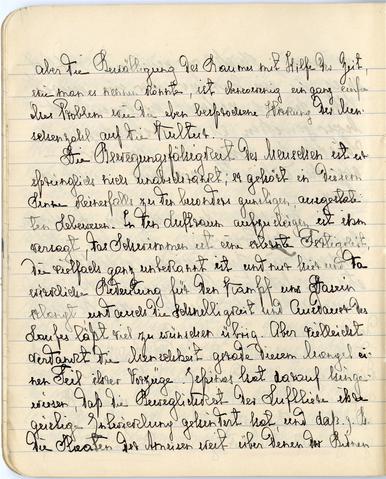 aber die Bewältigung des Raumes mit Hilfe der Zeit,
wie man es nennen könnte, ist ebensowenig ein ganz einfa
ches Problem wie die eben besprochene Wirkung der Men
schenzahl auf die Kultur.
Die Bewegungsfähigkeit des Menschen ist ur
sprünglich nicht unbeschränkt; er gehört in diesem
Sinne keinesfalls zu den besonders günstig ausgestatte
ten Lebewesen. In den Luftraum aufzusteigen ist ihm
versagt, das Schwimmen ist eine ernste Fertigkeit,
die vielfach ganz unbekannt ist und nur hier und da
wirkliche Bedeutung für den Kampf ums Dasein
erlangt und auch die Schnelligkeit und Ausdauer des
Laufes läßt viel zu wünschen übrig. Aber vielleicht
verdankt die Menschheit gerade diesem Mangel ei
nen Teil ihrer Vorzüge. Espinas hat darauf hinge
wiesen, daß die Beweglichkeit der Lufttiere ihre
geistige Entwicklung gehindert hat und daß z. B.
die Staaten der Ameisen weit über denen der Bienen